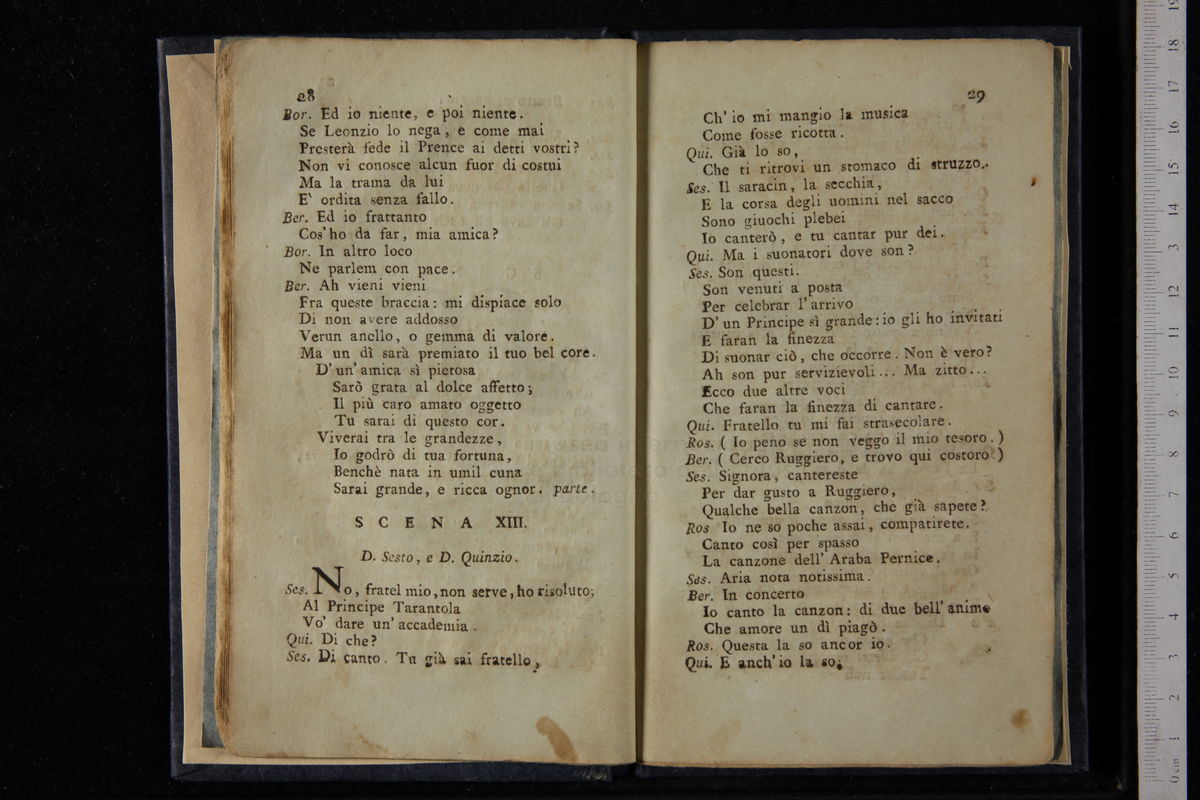 28
Bor. Ed io niente, e poi niente.
Se Leonzio lo nega, e come mai
Presterà fede il Prence ai detti vostri?
Non vi conosce alcun fuor di costui
Ma la trama da lui
E' ordita senza fallo.
Ber. Ed io frattanto
Cos' ho da far, mia amica?
Bor. In altro loco
Ne parlem con pace.
Ber. Ah vieni vieni
Fra queste braccia: mi dispiace solo
Di non avere addosso
Verun anello, o gemma di valore.
Ma un dì sarà premiato il tuo bel core.
D' un' amica sì pietosa
Sarò grata al dolce affetto;
Il più caro amato oggetto
Tu sarai di questo cor.
Viverai tra le grandezze,
Io godrò di tua fortuna,
Benchè nata in umil cuna
Sarai grande, e ricca ognor. parte.
SCENA XIII.
D. Sesto, e D. Quinzio.
Ses. No, fratel mio, non serve, ho risoluto;
Al Principe Tarantola
Vo' dare un' accademia.
Qui. Di che?
Ses. Di canto. Tu già sai fratello,
29
Ch' io mi mangio la musica
Come fosse ricotta.
Qui. Già lo so,
Che ti ritrovi un stomaco di struzzo.
Ses. Il saracin, la secchia,
E la corsa degli uomini nel sacco
Sono giuochi plebei
Io canterò, e tu cantar pur dei.
Qui. Ma i suonatori dove son?
Ses. Son questi.
Son venuti a posta
Per celebrar l' arrivo
D' un Principe sì grande: io gli ho invitati
E faran la finezza
Di suonar ciò, che occorre. Non è vero?
Ah son pur servizievoli... Ma zitto...
Ecco due altre voci
Che faran la finezza di cantare.
Qui. Fratello tu mi fai strasecolare.
Ros. ( Io peno se non veggo il mio tesoro. )
Ber. ( Cerco Ruggiero, e trovo qui costoro )
Ses. Signora, cantereste
Per dar gusto a Ruggiero,
Qualche bella canzon, che già sapete?
Ros Io ne so poche assai, compatirete.
Canto così per spasso
La canzone dell' Araba Pernice.
Ses. Aria nota notissima.
Ber. In concerto
Io canto la canzon: di due bell' anime
Che amore un dì piagò.
Ros. Questa la so ancor io.
Qui. E anch' io la so.